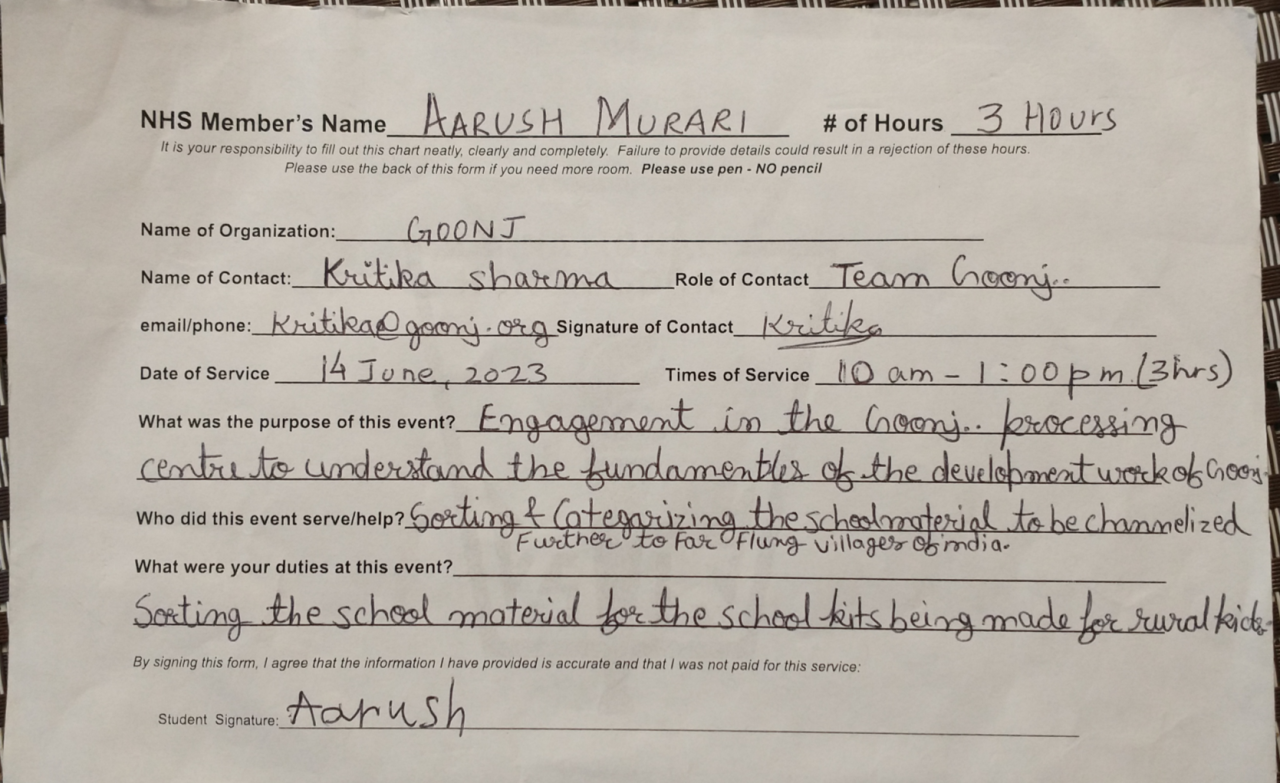 NHS Member's Name AARUSH MURARI # of Hours 3 Hours
It is your responsibility to fill out this chart neatly, clearly and completely. Failure to provide details could result in a rejection of these hours.
Please use the back of this form if you need more room. Please use pen - NO pencil
Name of Organization: GOONJ
Name of Contact: Kritika sharma Role of Contact Team Goonj..
email/phone: Kritika@goonj.org Signature of Contact Kritika
Date of Service 14 June, 2023 Times of Service 10 am - 1:00 pm (3hrs)
What was the purpose of this event? Engagement in the Goonj.. processing
centre to understand the fundamentles of the development work of Goonj.
Who did this event serve/help? Sorting & Categarizing the school material to be channelized
Further to Far Flung villages of india.
What were your duties at this event?
Sorting the school material for the school kits being made for rural kids.
By signing this form, I agree that the information I have provided is accurate and that I was not paid for this service:
Student Signature: Aarush